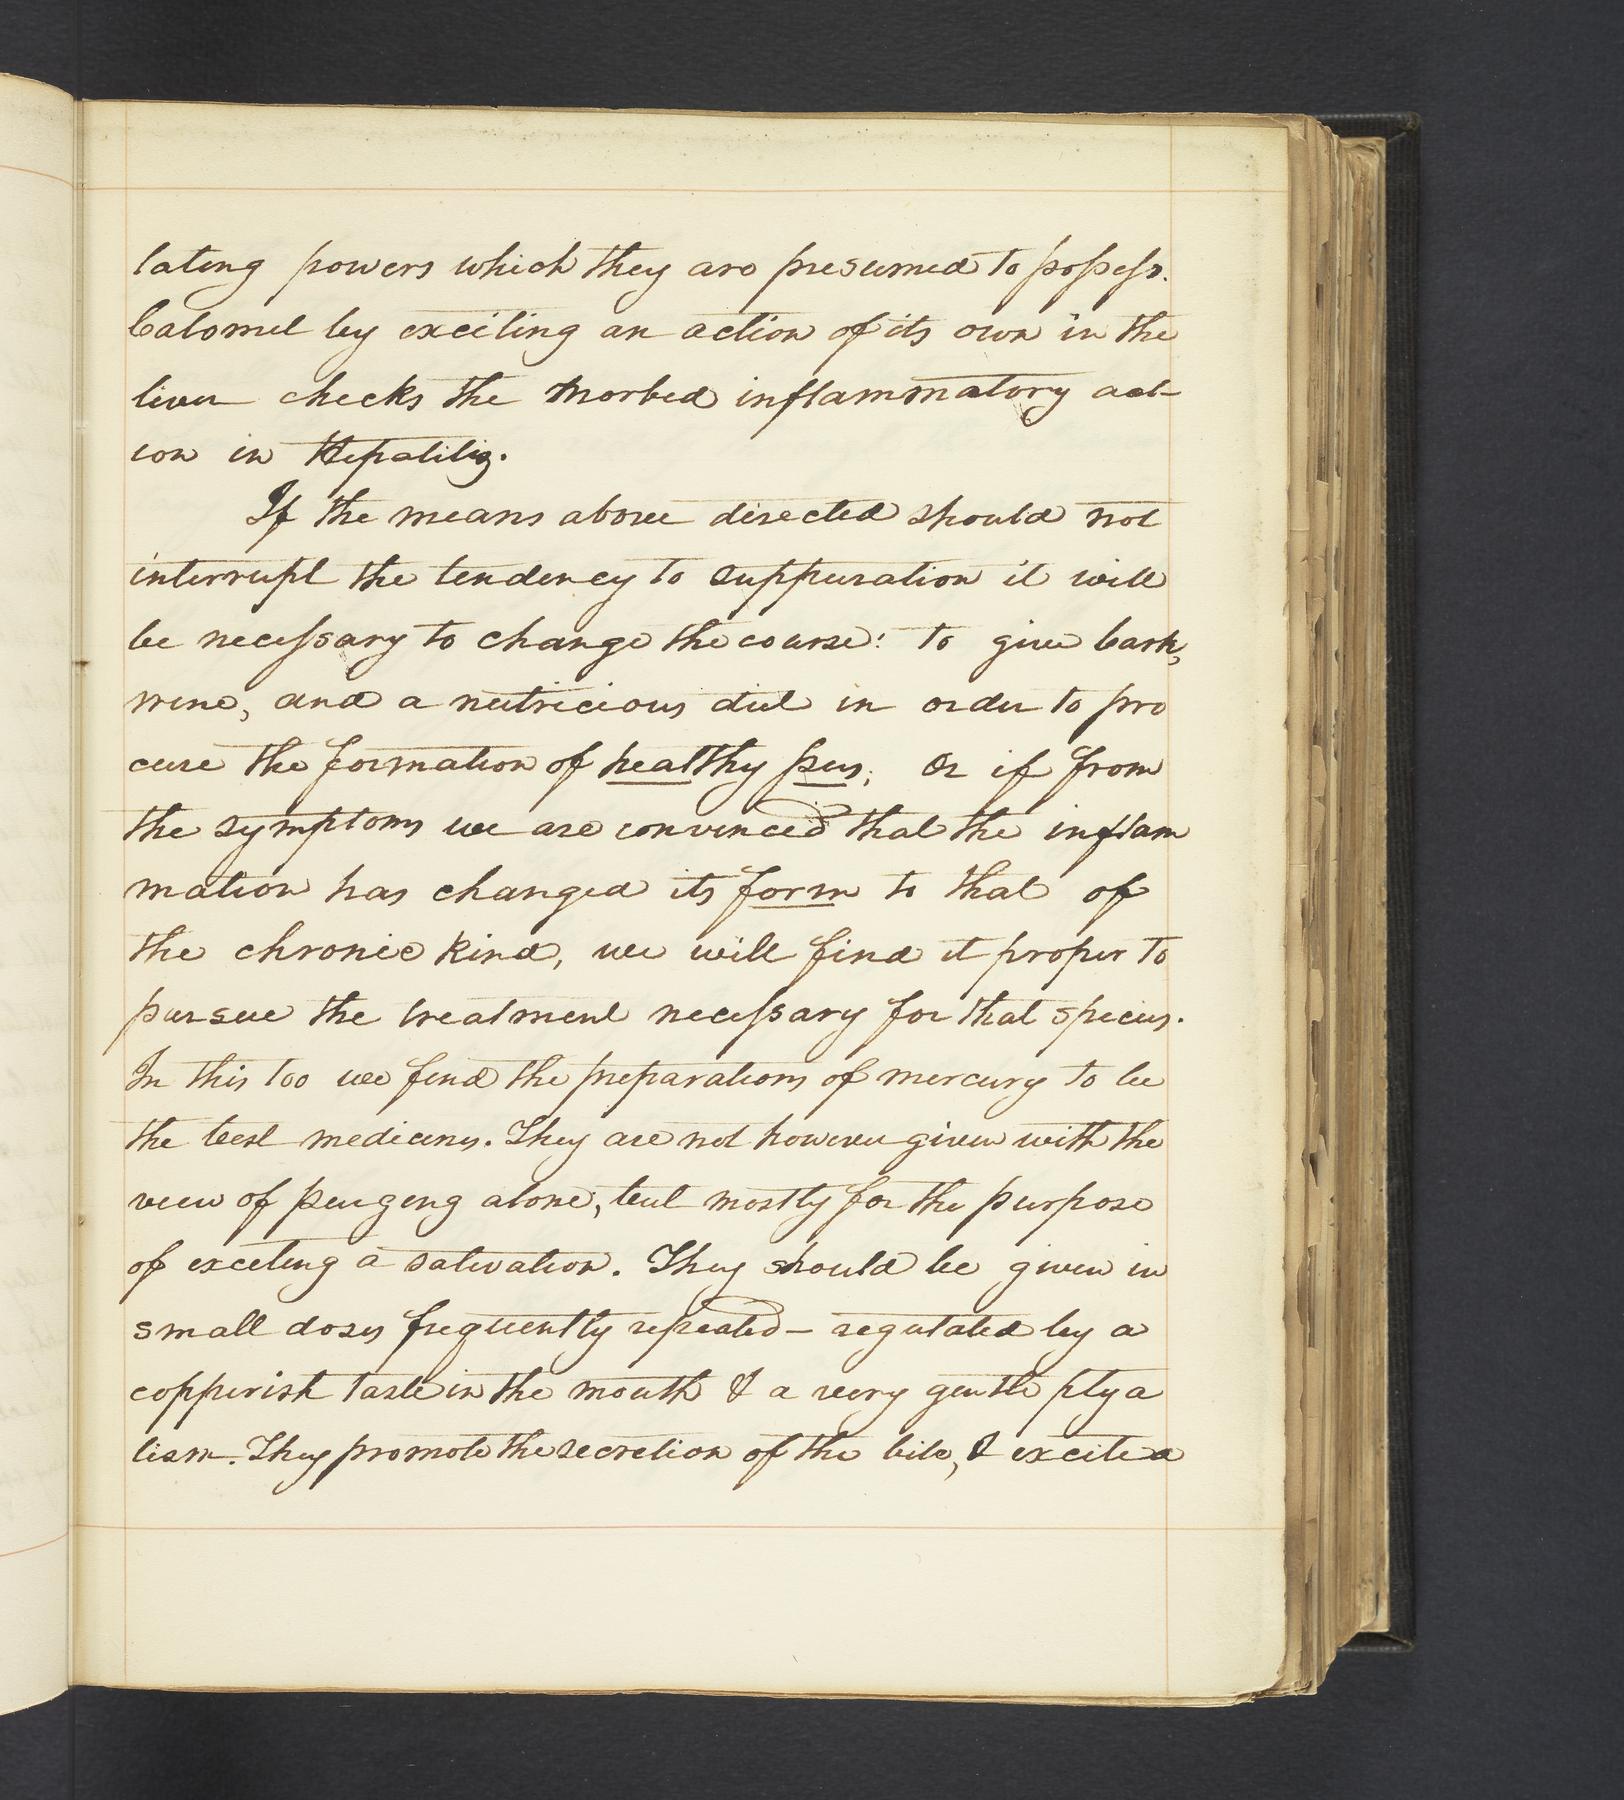 lating powers which they are presumed to possess.
Calomel by exciting an action of its own in the
liver checks the morbid inflammatory act-
ion in Hepatitis.
If the means above directed should not
interrupt the tendency to suppuration it will
be necessary to change the course: to give bark,
wine, and a nutricious diet in order to pro
cure the formation of healthy pus; Or if from
the symptoms we are convinced that the inflam
mation has changed its form to that of
the chronic kind, we will find it proper to
pursue the treatment necessary for that species.
In this too we find the preparations of mercury to be
the best medicines. They are not however given with the
view of purging alone, but mostly for the purpose
of exciting a salivation. They should be given in
small doses frequently repeated — regulated by a
copperish taste in the mouth & a very gentle ptya
lism. They promote the secretion of the bile, & excite a